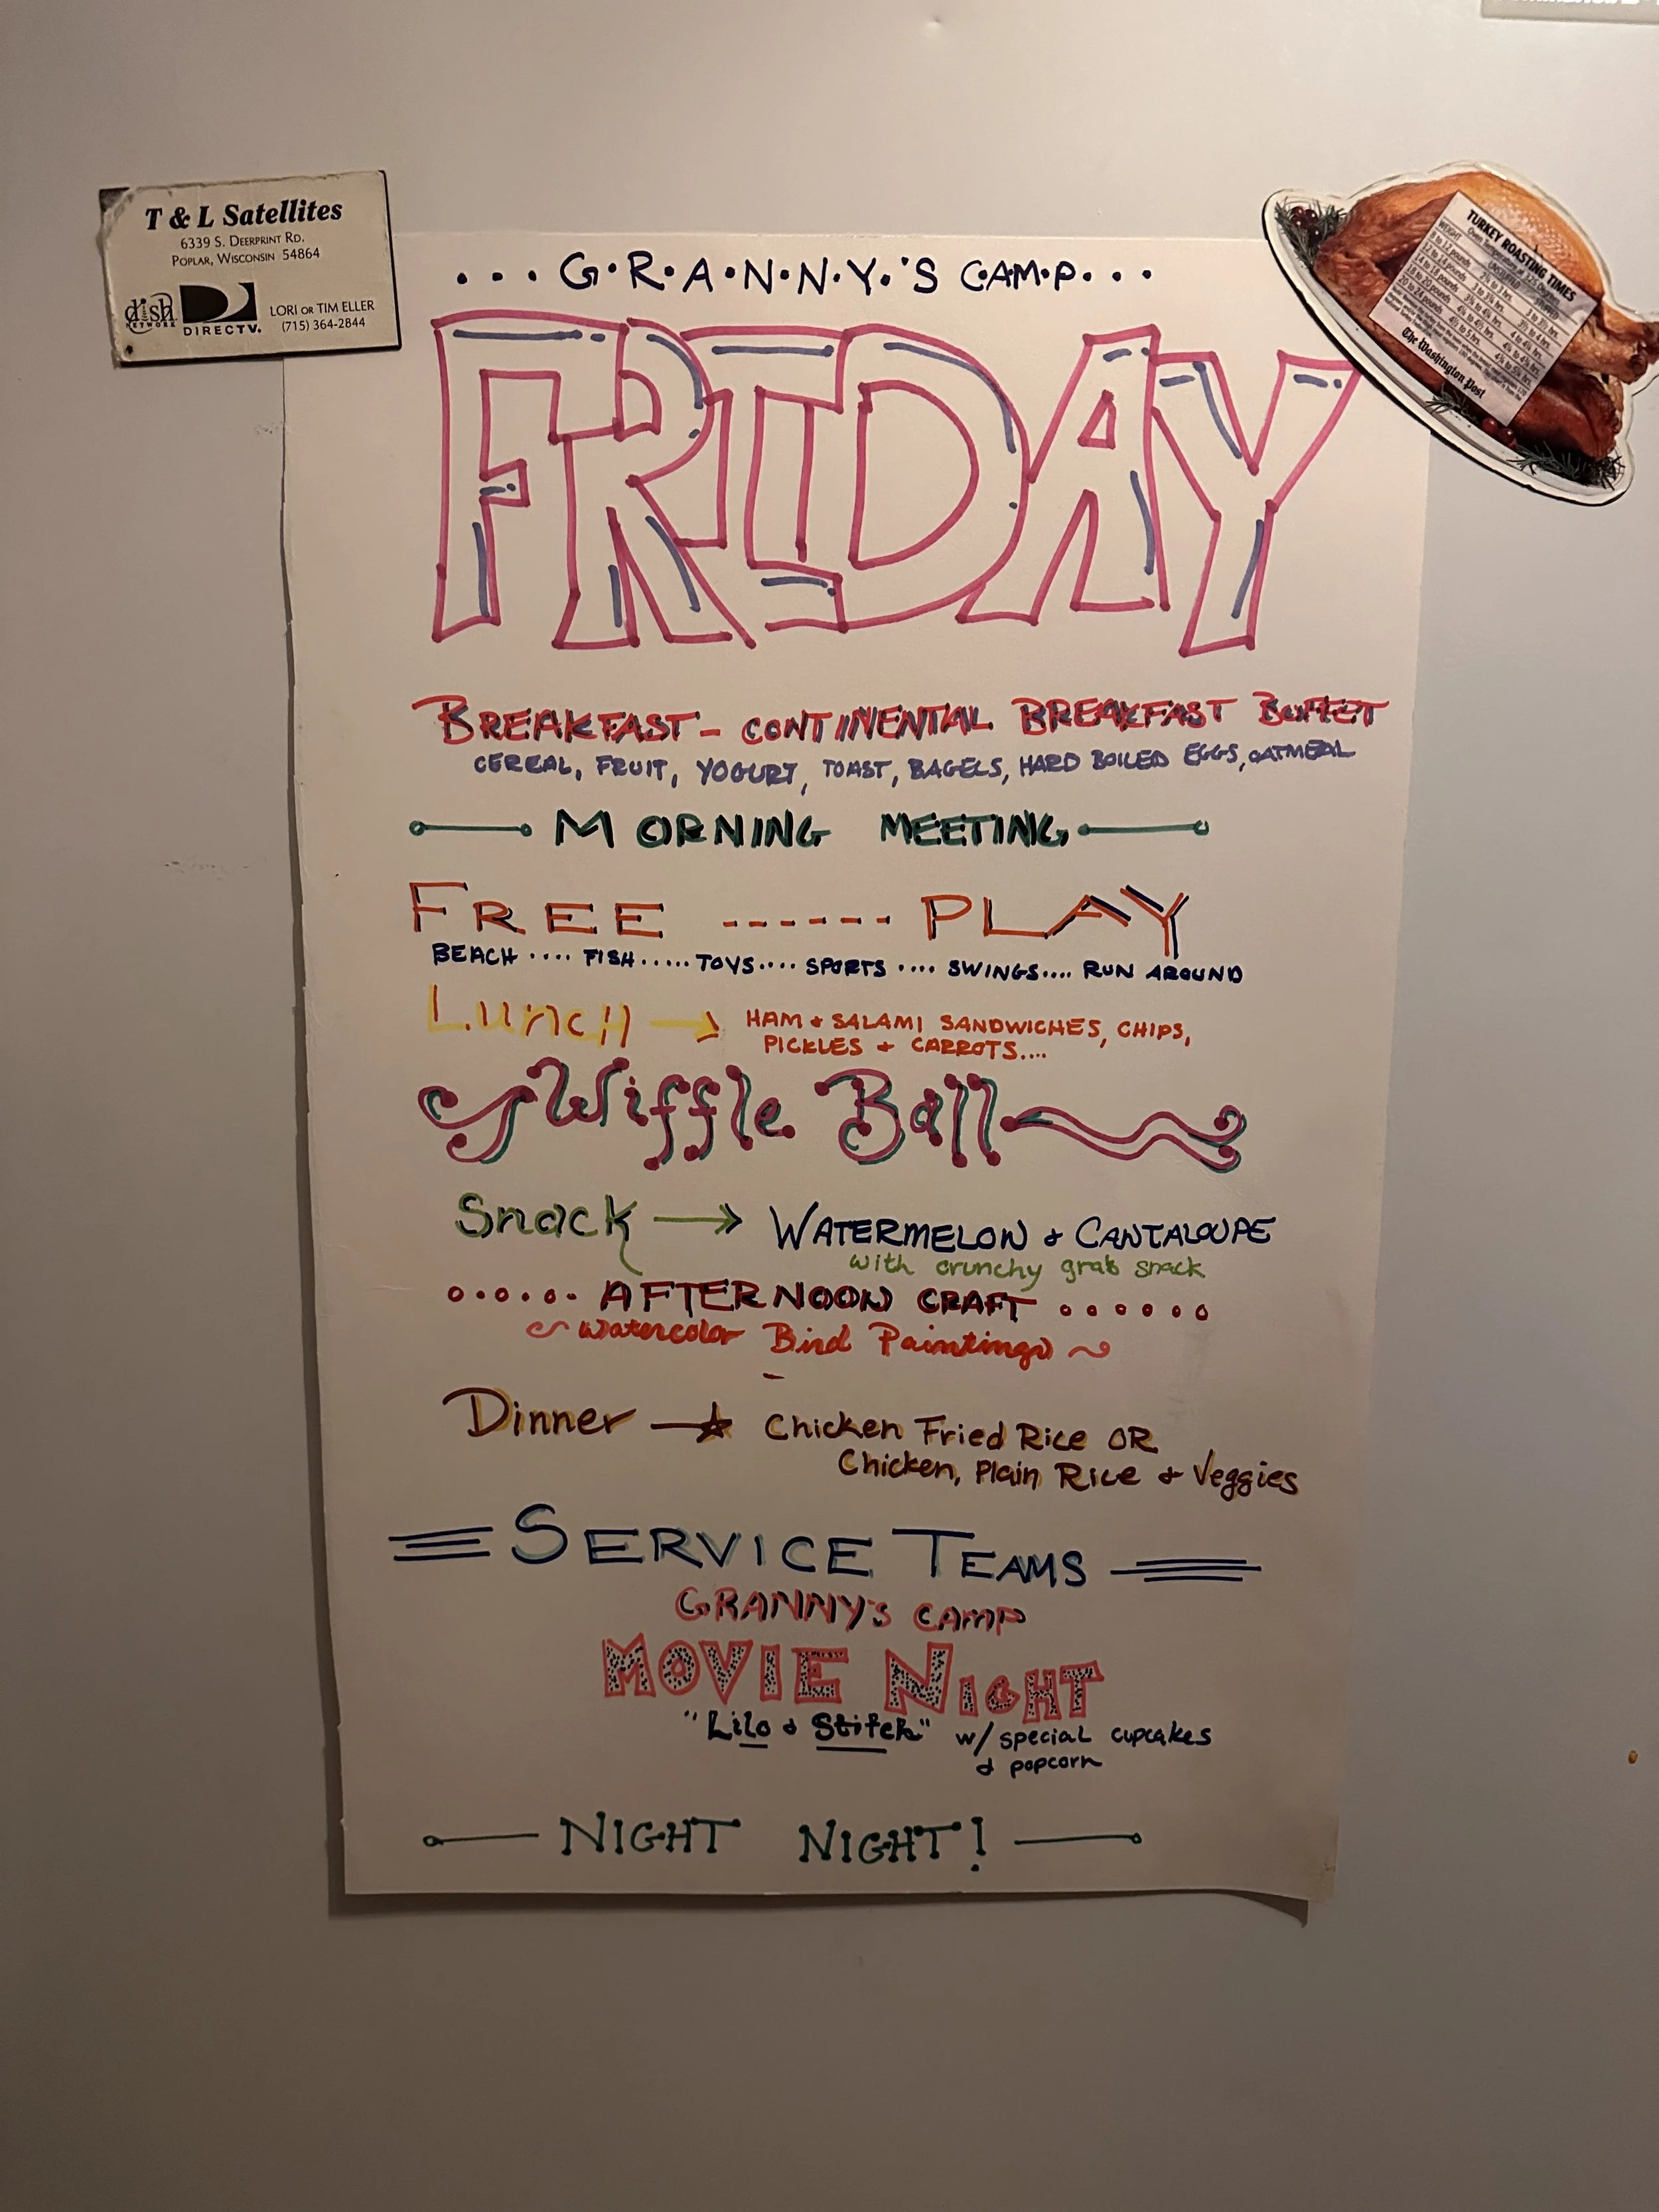 T & L Satellites
6339 S. DEERPRINT RD.
POPLAR, WISCONSIN 54864
dish
NETWORK
DIRECTV.
LORI OR TIM ELLER
(715) 364-2844
TURKEY ROASTING TIMES
WEIGHT
UNSTUFFED
STUFFED
The Washington Post
...G.R.A.N.N.Y.'S CAMP...
FRIDAY
BREAKFAST - CONTINENTAL BREAKFAST BUFFET
CEREAL, FRUIT, YOGURT, TOAST, BAGELS, HARD BOILED EGGS, OATMEAL
MORNING MEETING
FREE ------ PLAY
BEACH .... FISH ..... TOYS .... SPORTS .... SWINGS.... RUN AROUND
Lunch → HAM + SALAMI SANDWICHES, CHIPS,
PICKLES + CARROTS....
Wiffle Ball
Snack → WATERMELON & CANTALOUPE
with crunchy grab snack
AFTERNOON CRAFT
~ Watercolor Bird Paintings ~
Dinner —☆ Chicken Fried Rice OR
Chicken, Plain Rice & Veggies
SERVICE TEAMS
GRANNY'S CAMP
MOVIE NIGHT
"Lilo & Stitch" w/ special cupcakes
& popcorn
NIGHT NIGHT!